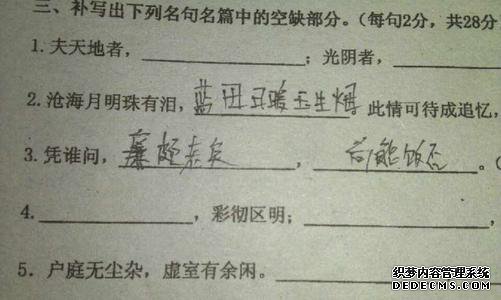 三、补写出下列名句名篇中的空缺部分。(每句2分，共28分
1. 夫天地者，____________；光阴者，________
2. 沧海月明珠有泪，蓝田日暖玉生烟 此情可待成追忆，
3. 凭谁问，廉颇老矣，尚能饭否。(
4. ____________，彩彻区明；____________
5. 户庭无尘杂，虚室有余闲。____________
织梦内容管理系统
DEDECMS.COM